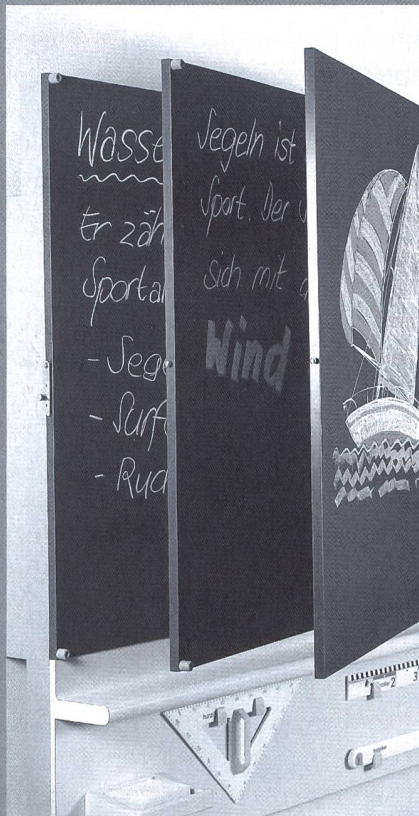 Wasse
Er zäh
Sportar
- Sege
- Surf
- Rud
Segeln ist
Sport. Der
sich mit
Wind
2 3